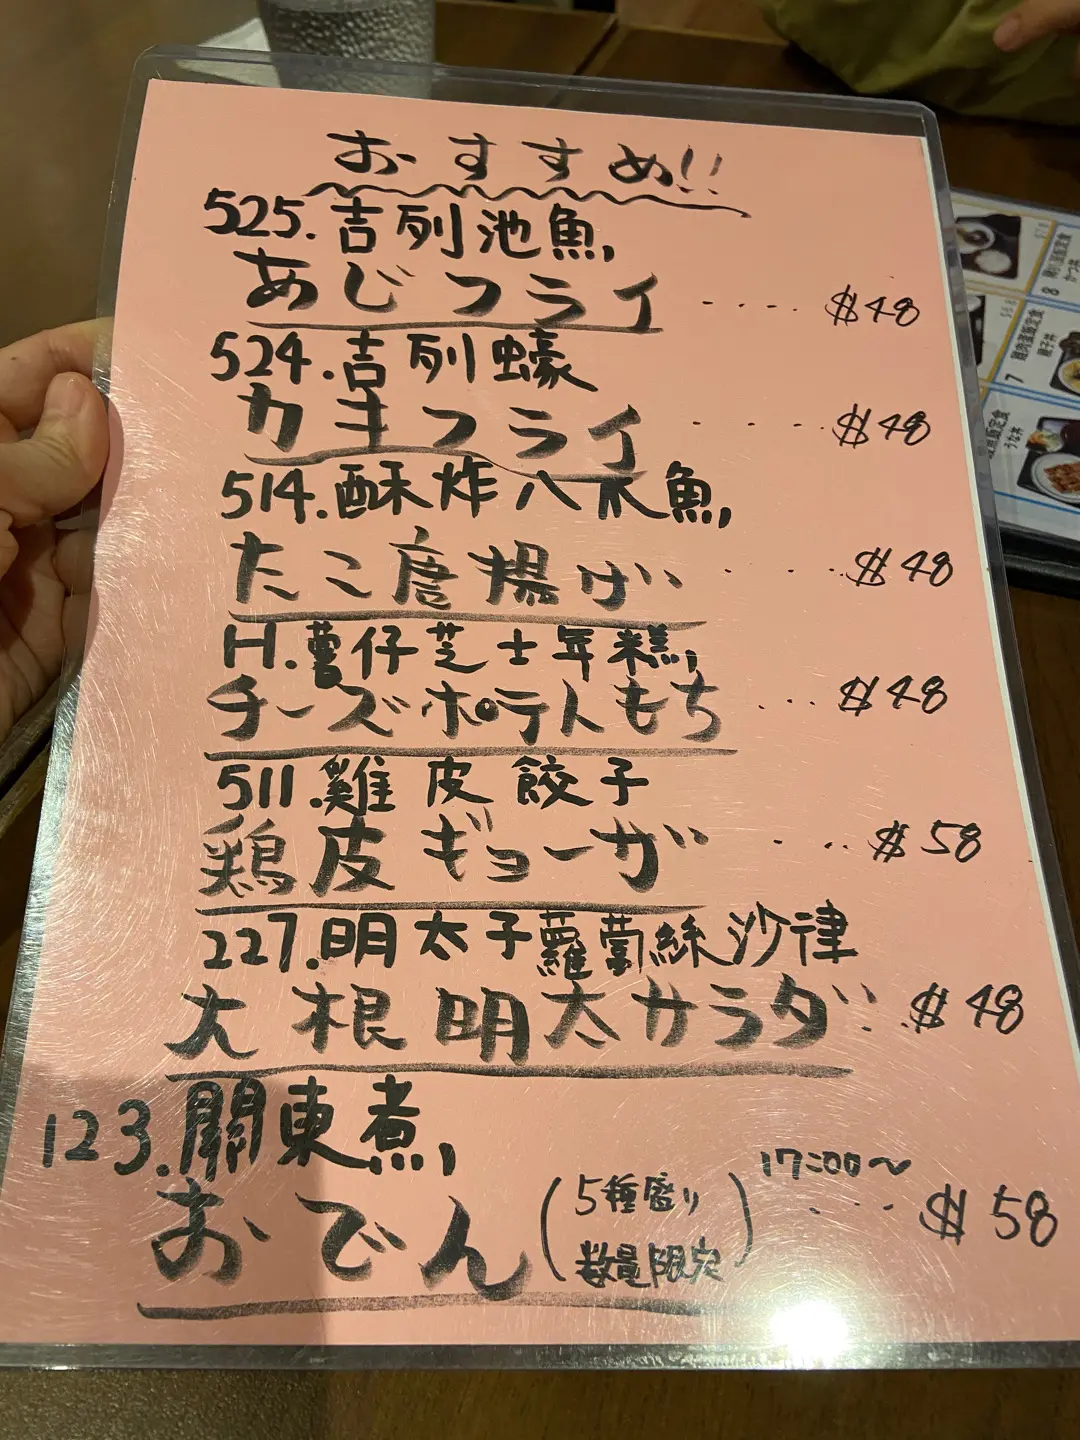 おすすめ!!
525.吉列池魚
あじフライ ..... $48
524.吉列蠔
カキフライ ..... $48
514.酥炸八爪魚
たこ唐揚げ ..... $48
H.薯仔芝士年糕
チーズポテトもち ..... $48
511.雞皮餃子
鶏皮ギョーザ ..... $58
227.明太子蘿蔔絲沙律
大根明太サラダ ... $48
123.關東煮
おでん (5種盛り 数量限定) 17:00〜 .... $58
8
かつ丼
7
親子丼
うな丼